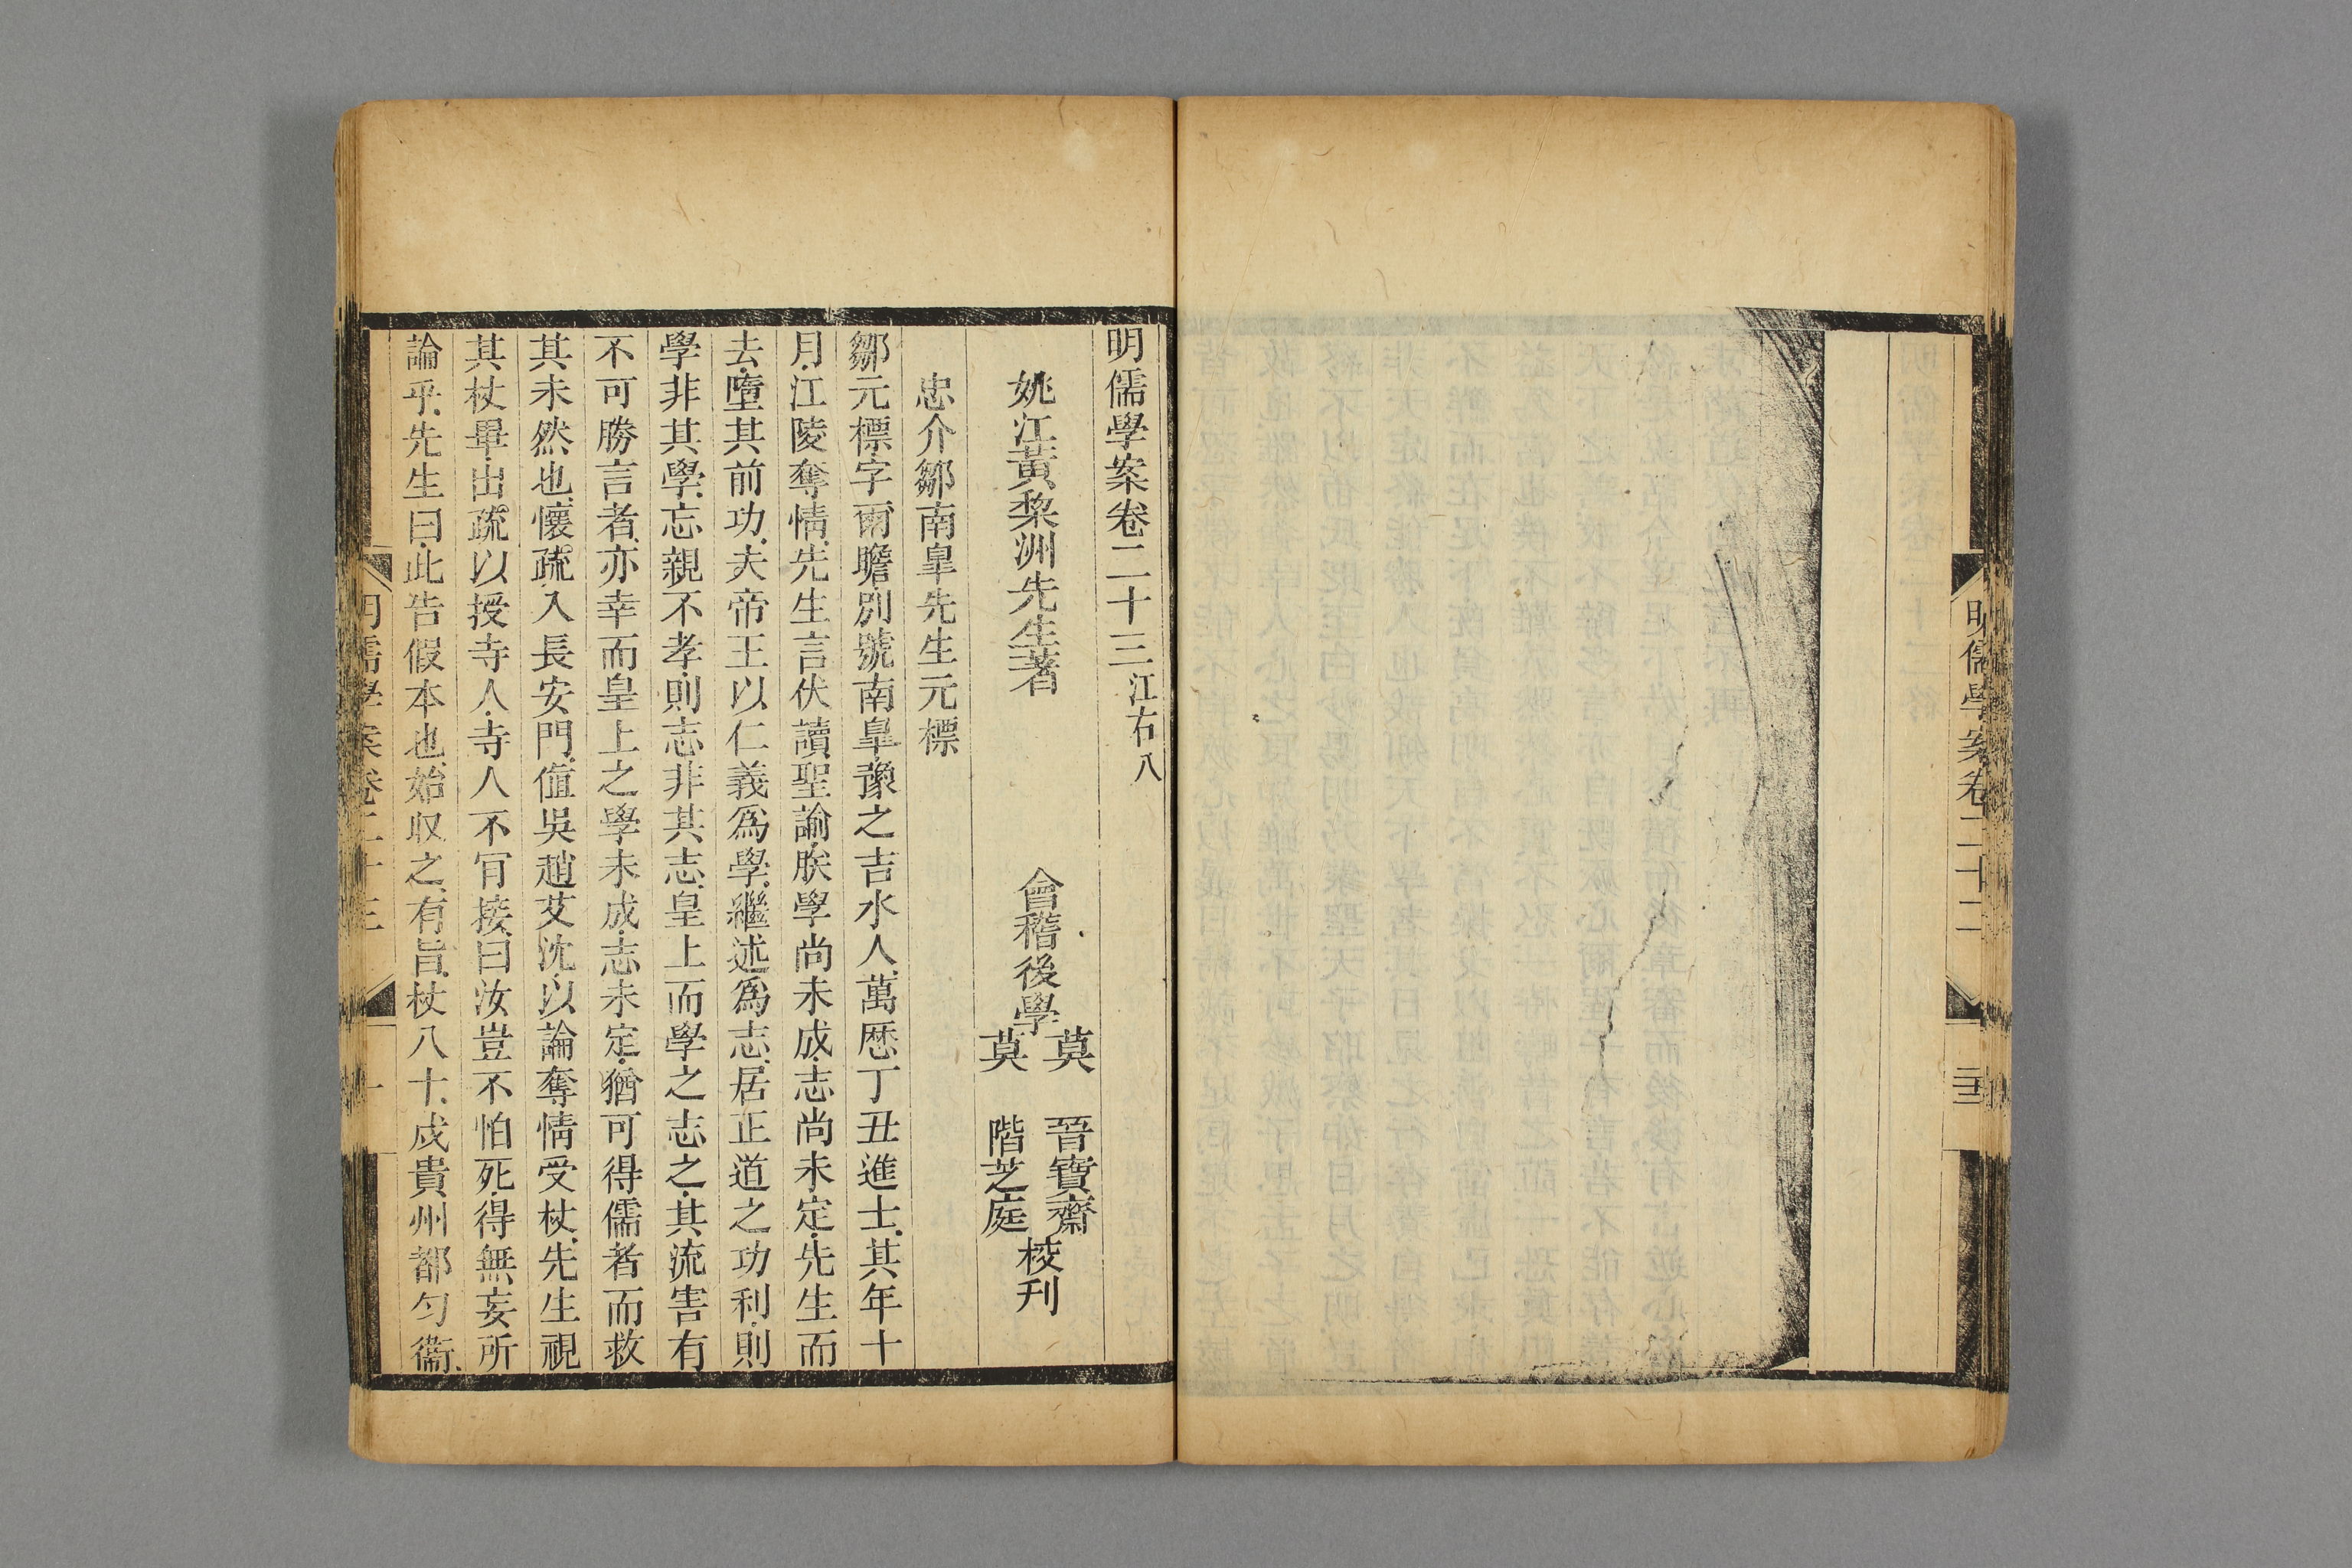 明儒學案卷二十二
明儒學案卷二十三江右八
姚江黃棃洲先生著
會稽後學
莫晉寶齋
莫階芝庭
校刊
忠介鄒南臯先生元標
鄒元標字爾瞻別號南臯豫之吉水人萬厯丁丑進士其年十
月江陵奪情先生言伏讀聖諭朕學尚未成志尚未定先生而
去墮其前功夫帝王以仁義爲學繼述爲志居正道之功利則
學非其學忘親不孝則志非其志皇上而學之志之其流害有
不可勝言者亦幸而皇上之學未成志未定猶可得儒者而救
其未然也懷疏入長安門值吳趙艾沈以論奪情受杖先生視
其杖畢出疏以授寺人寺人不肎接曰汝豈不怕死得無妄所
論乎先生曰此告假本也始収之有旨杖八十戍貴州都勻衞
明儒學案卷二十三
一